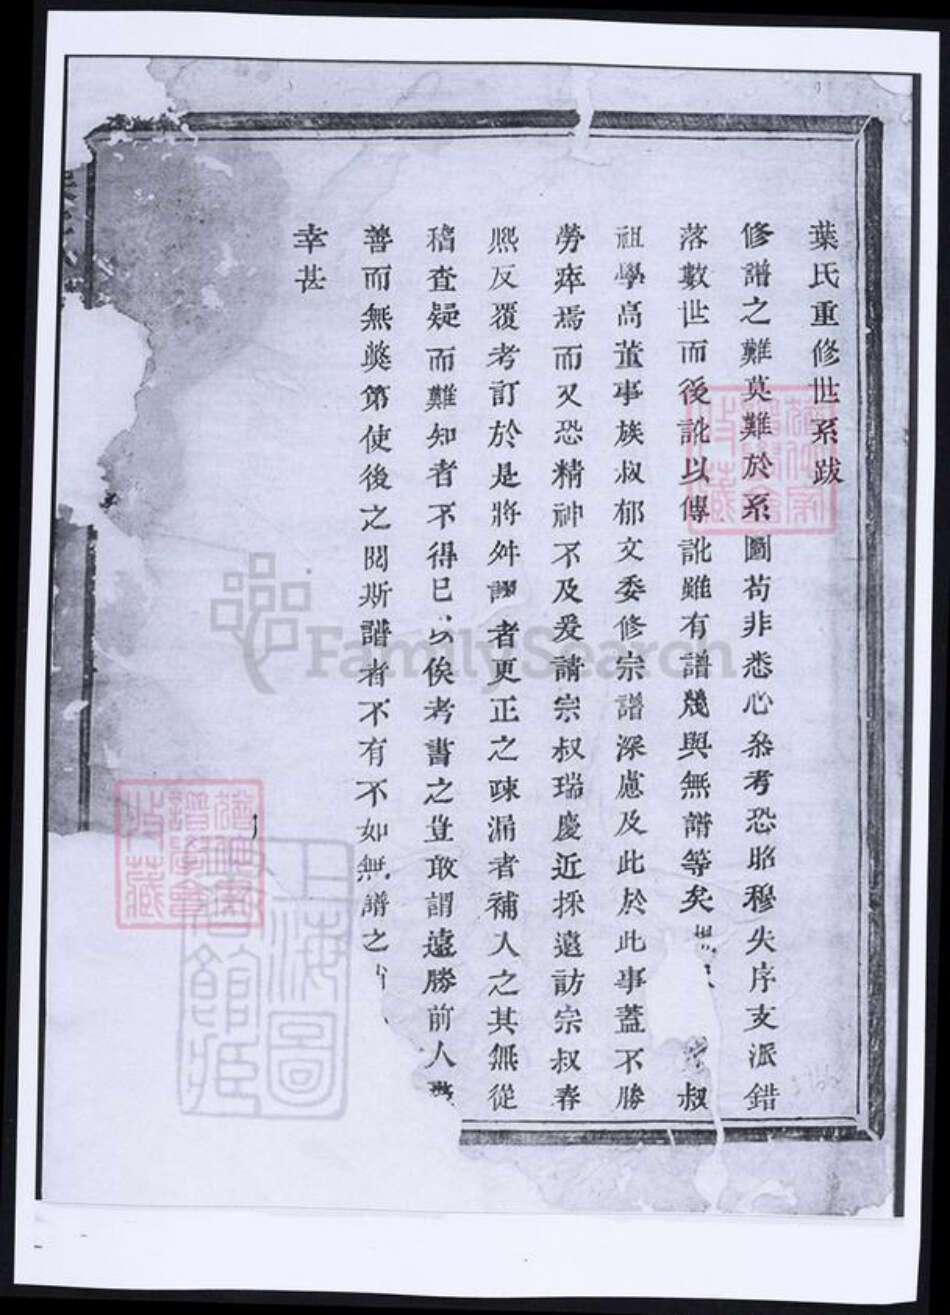 葉氏重修世系跋
修譜之難莫難於系圖苟非悉心叅考恐昭穆失序支派錯
落數世而後訛以傳訛雖有譜幾與無譜等矣 叔
祖學高董事族叔郁文委修宗譜深慮及此於此事蓋不勝
勞瘁焉而又恐精神不及爰請宗叔瑞慶近採遠訪宗叔春
熈反覆考訂於是將舛謬者更正之疎漏者補入之其無從
稽查疑而難知者不得已以俟考書之豈敢謂遠勝前人
善而無獘第使後之閱斯譜者不有不如無譜之
幸甚
FamilySearch
上海圖書館藏